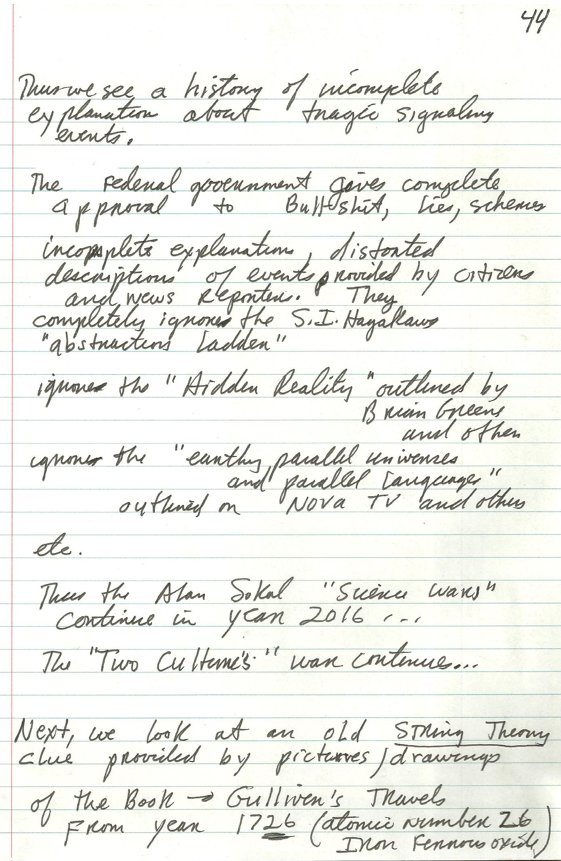 44
Thus we see a history of incomplete
explanation about tragic signaling
events.
The Federal government gives complete
approval to Bullshit, lies, schemes
incomplete explanations, distorted
descriptions of events provided by citizens
and news Reporters. They
completely ignores the S.I. Hayakawa
"abstraction ladder"
ignores the "Hidden Reality" outlined by
Brian Greene
and others
ignores the "earthy parallel universes
and parallel languages"
outlined on NOVA TV and others
etc.
Thus the Alan Sokal "Science Wars"
continue in year 2016 ...
The "Two Culture's" war continues...
Next, we look at an old String Theory
clue provided by pictures/drawings
of the Book → Gulliver's Travels
From year 1726 (atomic number 26
Iron Ferrous oxide)